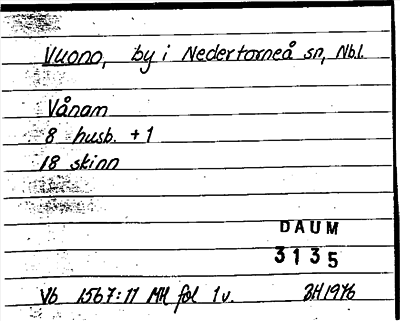 Vuono, by i Nedertorneå sn, Nbl.
Vånam
8 husb. + 1
18 skinn
DAUM
3135
Vb 1567:17 MH fol 1v. BH 1976